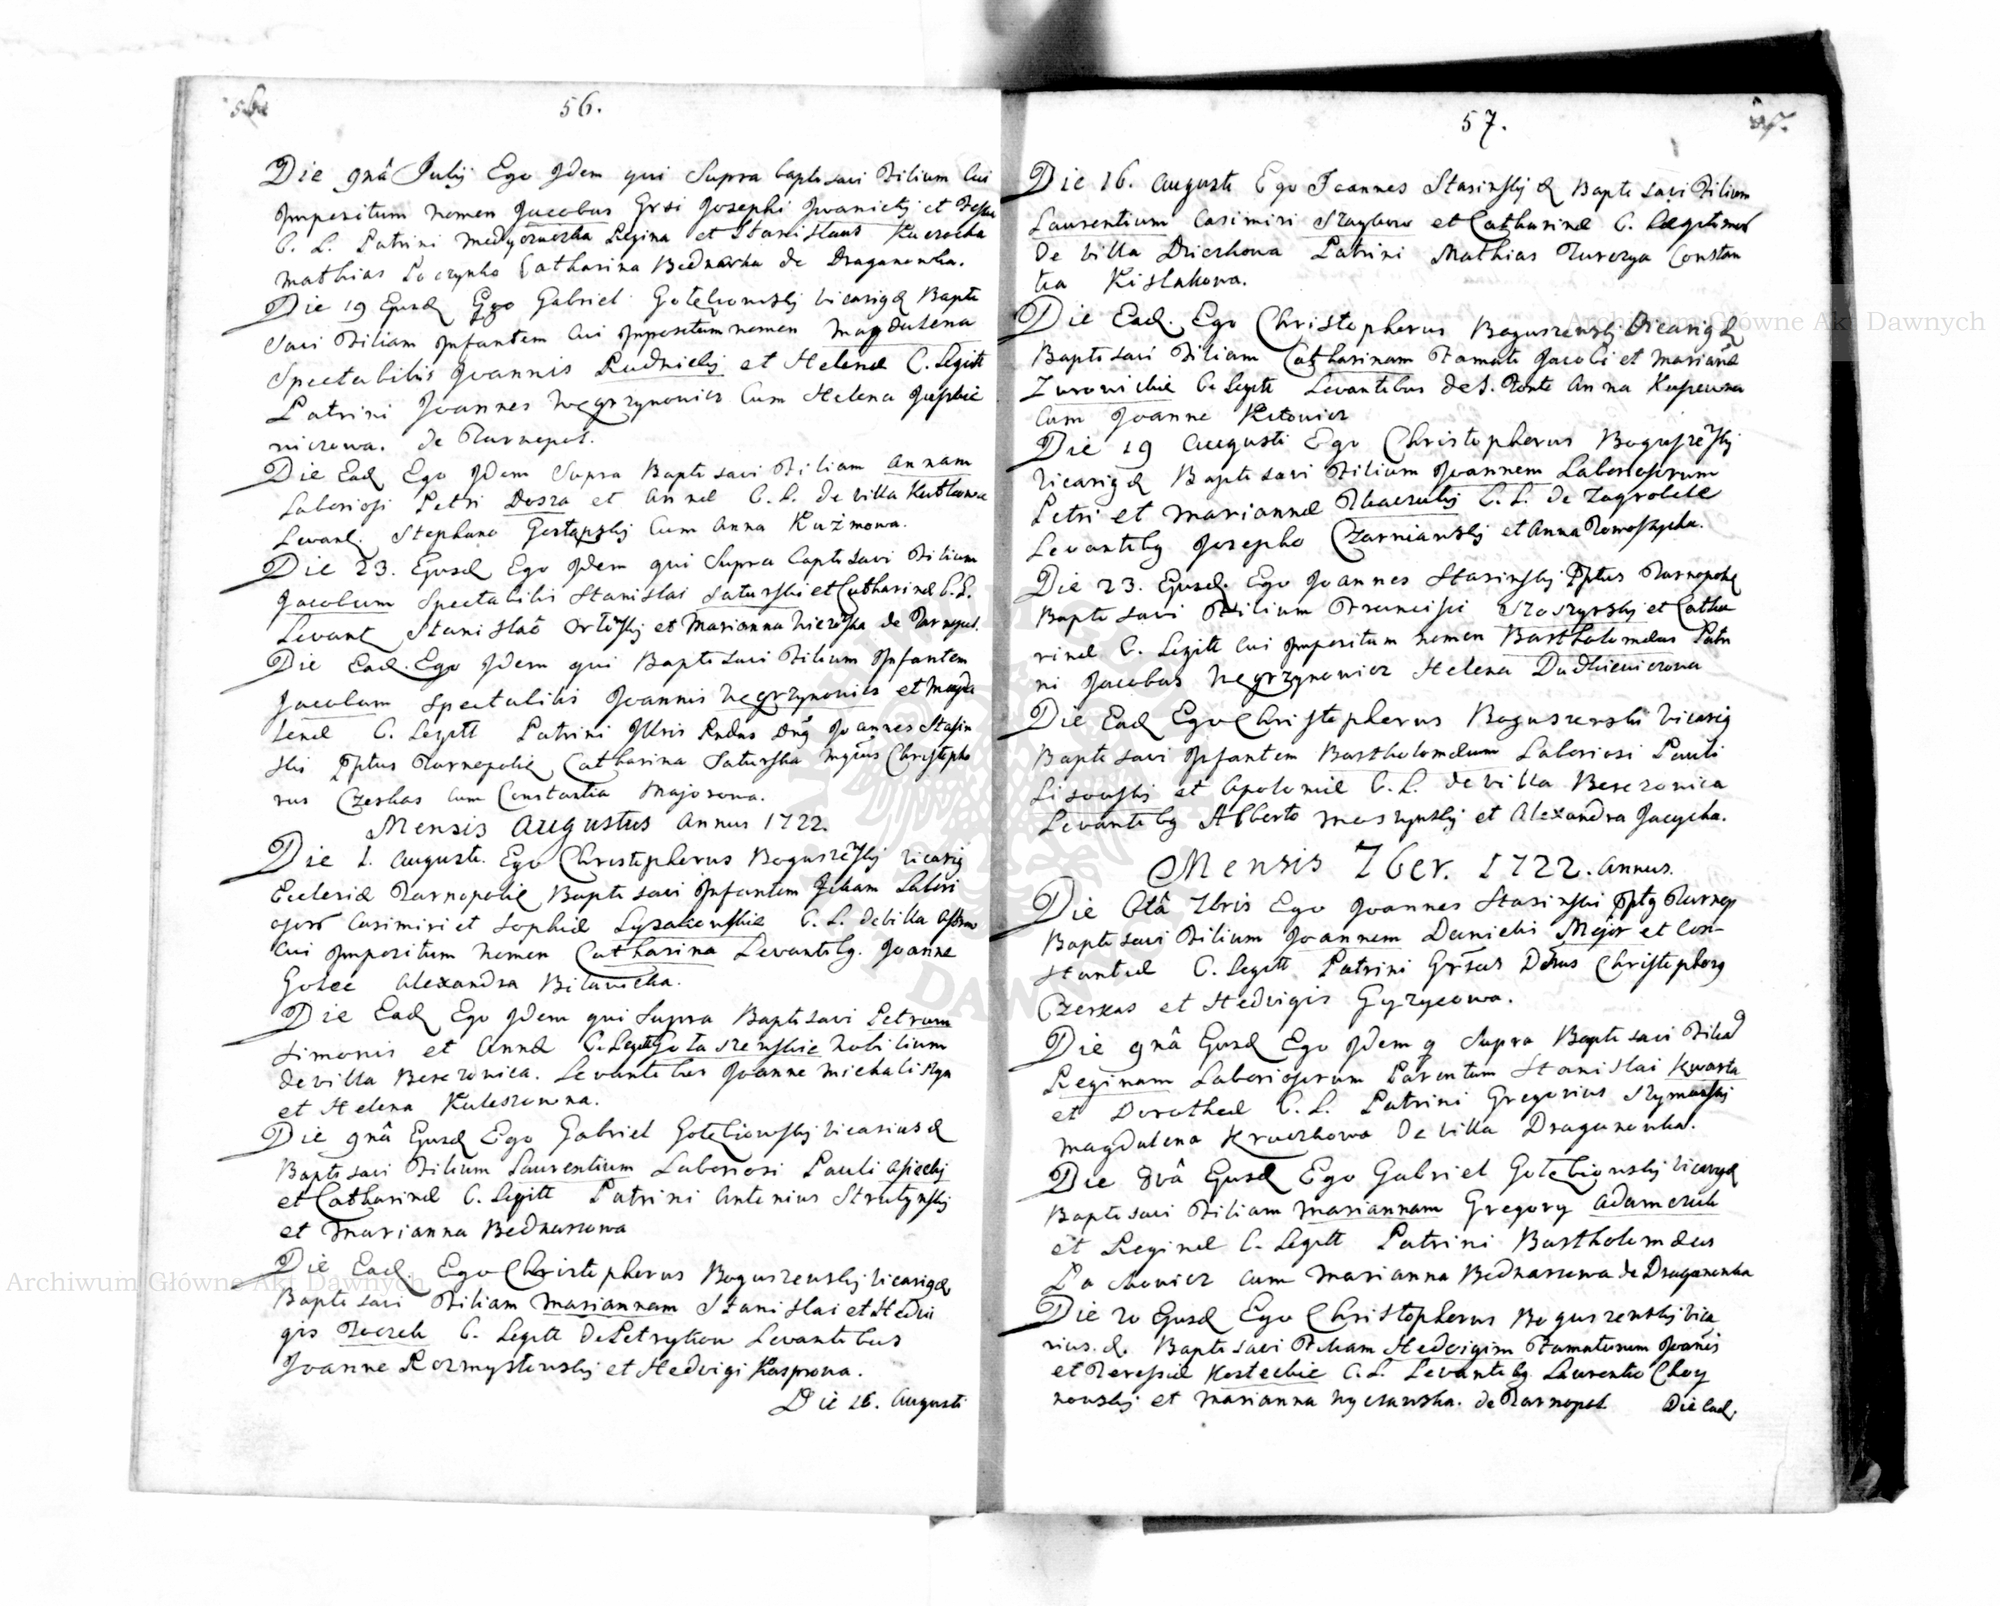 56.
Die 9nâ Julij Ego Idem qui Supra baptisavi Filium Cui
Impositum nomen Jacobus Grsi Josephi Iwanicki et
C. L. Patrini Regina et Stanislaus
Mathias Catharina Bednarka de Draganowka.
Die 19 Eiusd Ego Gabriel Gołębiowskij Vicarig& Bapti
savi Filiam Infantem Cui Impositum nomen Magdalena
Spectabilis Joannis Rudnickij et Helenæ C. Legitt
Patrini Joannes Węgrzynowicz Cum Helena
niczowa. de Tarnopol.
Die Ead Ego Idem Supra Baptisavi Filiam Annam
Laboriosi Petri Dosza et Annæ C. L. de villa
Levant. Stephano Cum Anna Kuźmowa.
Die 23. Eiusd Ego Idem qui Supra baptisavi Filium
Jacobum Spectabilis Stanislai Saturskij et Catharinæ C. L.
Levant Stanislao et Marianna de Tarnopol.
Die Ead. Ego Idem qui Baptisavi Filium Infantem
Jacobum Spectabilis Joannis Węgrzynowicz et Magda
lenæ C. Legitt Patrini Illris Rndus Dng Joannes Stasin
ski Pptus Tarnopolie Catharina Saturska Christopho
rus Czerkas cum Constantia Majorowa.
Mensis Augustus Annus 1722.
Die 1. Augusti. Ego Christopherus Boguszewskij Vicarig
Ecclesiæ Tarnopolie Baptisavi Infantem Filiam Labori
osor Casimiri et Sophiæ C. L. de villa
Cui Impositum nomen Catharina Levantibg. Joanne
Golec Alexandra
Die Ead Ego Idem qui Supra Baptisavi Petrum
Simonis et Annæ C. Legitt Gołaszewskie Nobilium
de villa Berezowica. Levantibus Joanne
et Helena Kuleszowna.
Die 9nâ Eiusd Ego Gabriel Gołębiowskij Vicarius&
Baptisavi Filium Laurentium Laboriosi Pauli
et Catharinæ C. Legitt Patrini Antonius Strutynskij
et Marianna Bednarzowa
Die Ead Ego Christopherus Boguszewskij Vicarig&
Baptisavi Filiam Mariannam Stanislai et Hedvi
gis C. Legitt de Petrykow Levantibus
Joanne Rozmysłowskij et Hedvigi Kasprowa.
Die 16. Augusti
57.
Die 16. Augusti Ego Joannes Stasinskij & Baptisavi Filium
Laurentium Casimiri et Catharinæ C. Legitimor
de villa Patrini Mathias Constan
tia Kislakowa.
Die Ead. Ego Christopherus Boguszewskij Vicarig&
Baptisavi Filiam Catharinam Famati Jacobi et Mariañæ
Zurowickie C. Legitt Levantibus de S. Fonte Anna
Cum Joanne
Die 19 Augusti Ego Christopherus Boguszewskij
Vicarig& Baptisavi Filium Joannem Laboriosorum
Petri et Mariannæ C. L. de Zagrobele
Levantibg Josepho Czarnianskij et Anna
Die 23. Eiusd. Ego Joannes Stasinskij Pptus Tarnopolie
Baptisavi Filium Francisci et Catha
rinæ C. Legitt Cui Impositum nomen Bartholomæus Patri
ni Jacobus Węgrzynowicz Helena Dudkiewiczowa
Die Ead Ego Christopherus Boguszewski Vicarig
Baptisavi Infantem Bartholomæum Laboriosi Pauli
Lisowskij et Apoloniæ C. L. de villa Berezowica
Levantibg Alberto et Alexandra
Mensis 7ber. 1722. Annus.
Die 6tâ 7bris Ego Joannes Stasinski Pptg Tarnop
Baptisavi Filium Joannem Danielis Major et Con-
stantiæ C. Legitt Patrini Grsus Dnus Christophorg
Czerkas et Hedvigis
Die 9nâ Eiusd Ego Idem q Supra Baptisavi Filia
Reginam Laboriosorum Parentum Stanislai Kwarta
et Dorotheæ C. L. Patrini Gregorius
Magdalena de villa Draganowka.
Die 8vâ Eiusd Ego Gabriel Gołębiowskij Vicarig&
Baptisavi Filiam Mariannam Gregory Adamczuk
et Reginæ C. Legitt Patrini Bartholomæus
Pachowicz cum Marianna Bednarzowa de Draganowka
Die 20 Eiusd Ego Christopherus Boguszewskij Vica
rius.&. Baptisavi Filiam Hedvigim Famatorum Joañis
et Teressiæ Kosteckie C. L. Levantibg Laurentio Choy
nowskij et Marianna de Tarnopol Die Ead.
Archiwum Główne Akt Dawnych
Archiwum Główne Akt Dawnych